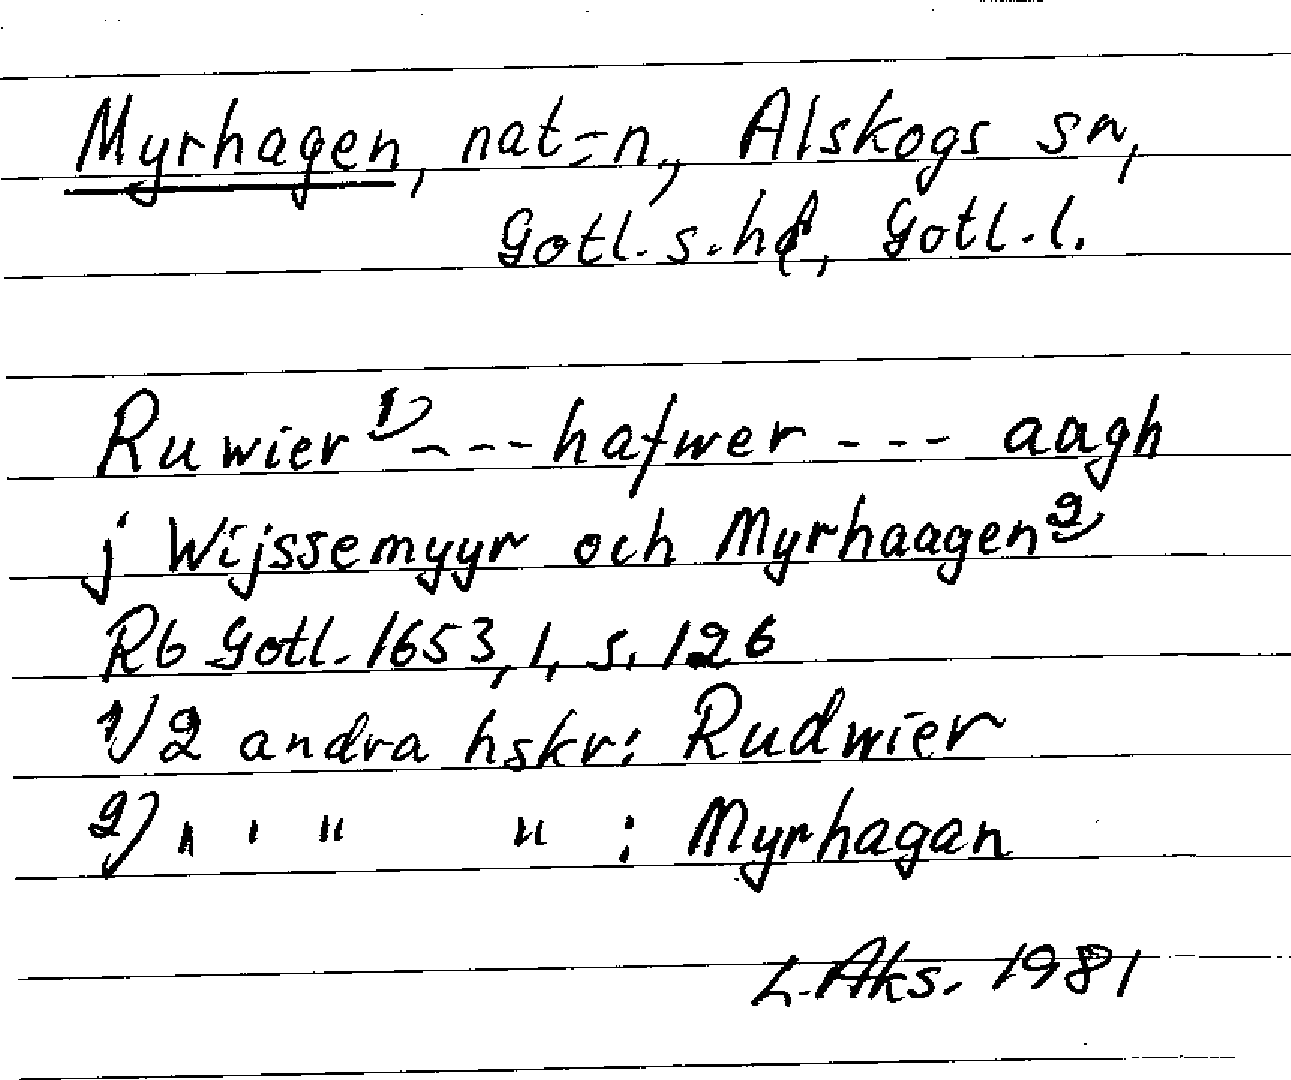 Myrhagen, nat=n., Alskogs sn,
Gotl. s. hd, Gotl. l.
Ruwier 1) --- hafwer --- aagh
j Wijssemyyr och Myrhaagen 2)
Rb Gotl. 1653, 1, s. 126
1) 2 andra hskr: Rudwier
2) " " " " : Myrhagan
L. Aks. 1981